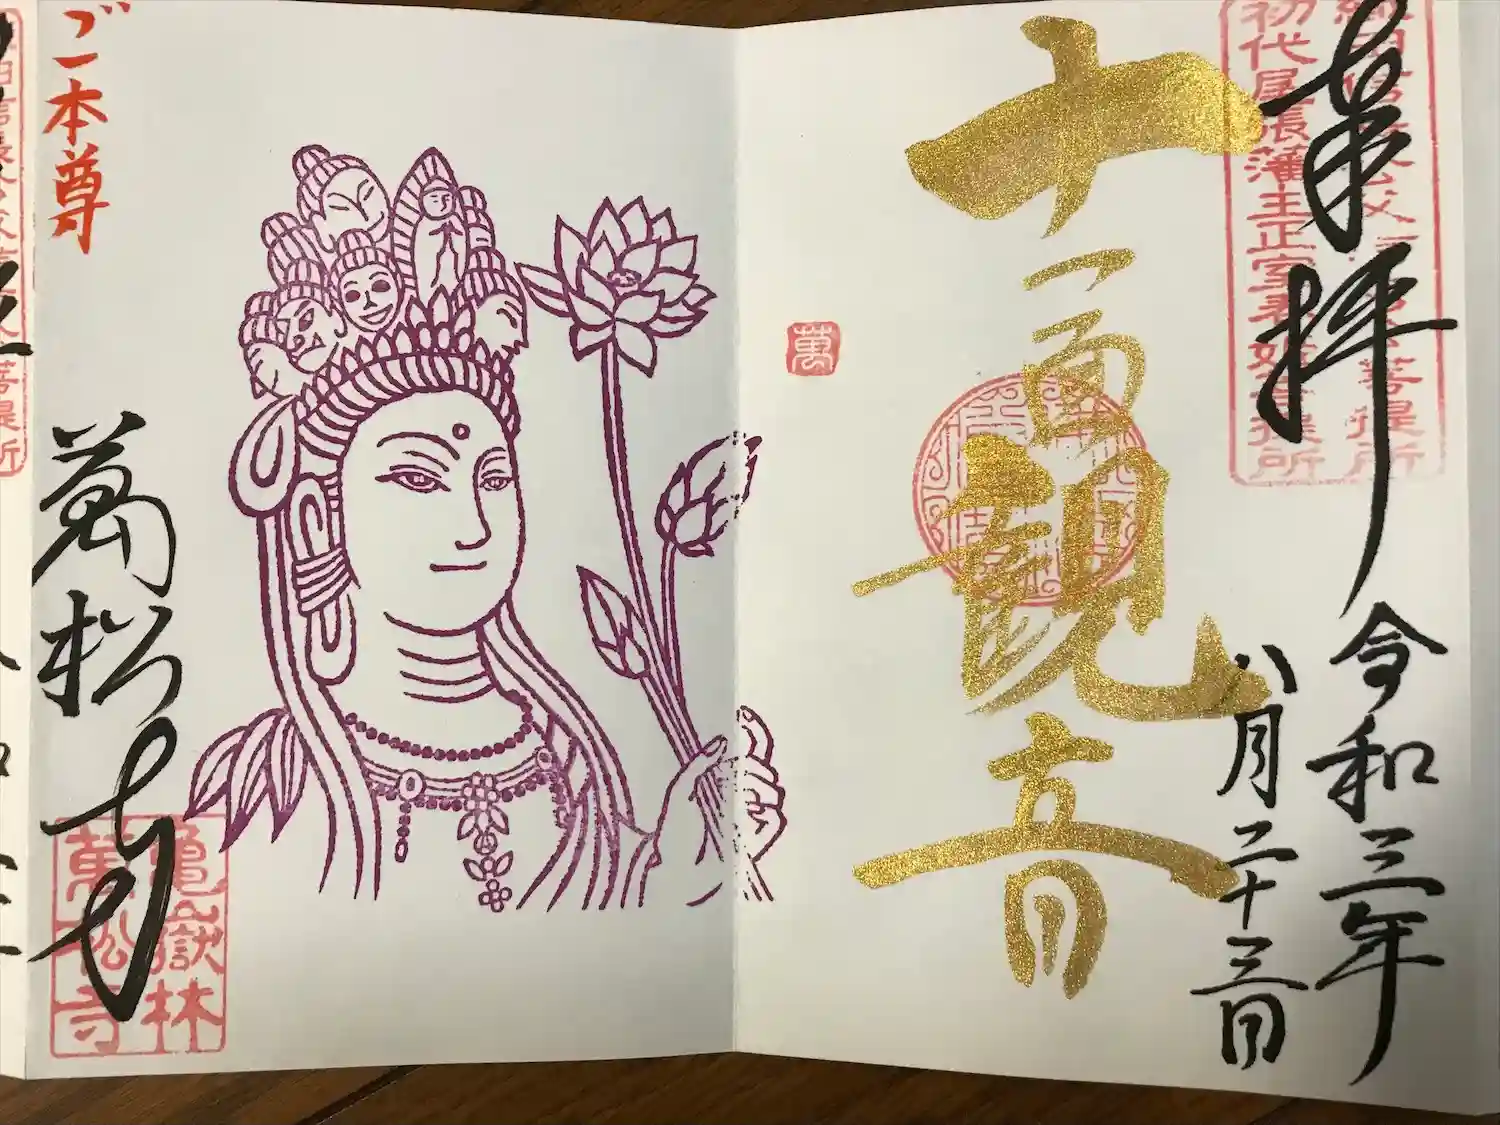 奉拝
令和三年
八月二十三日
初代尾張藩主正室春姫菩提所
十一面観音
萬
ご本尊
萬松寺
亀嶽林
萬松寺